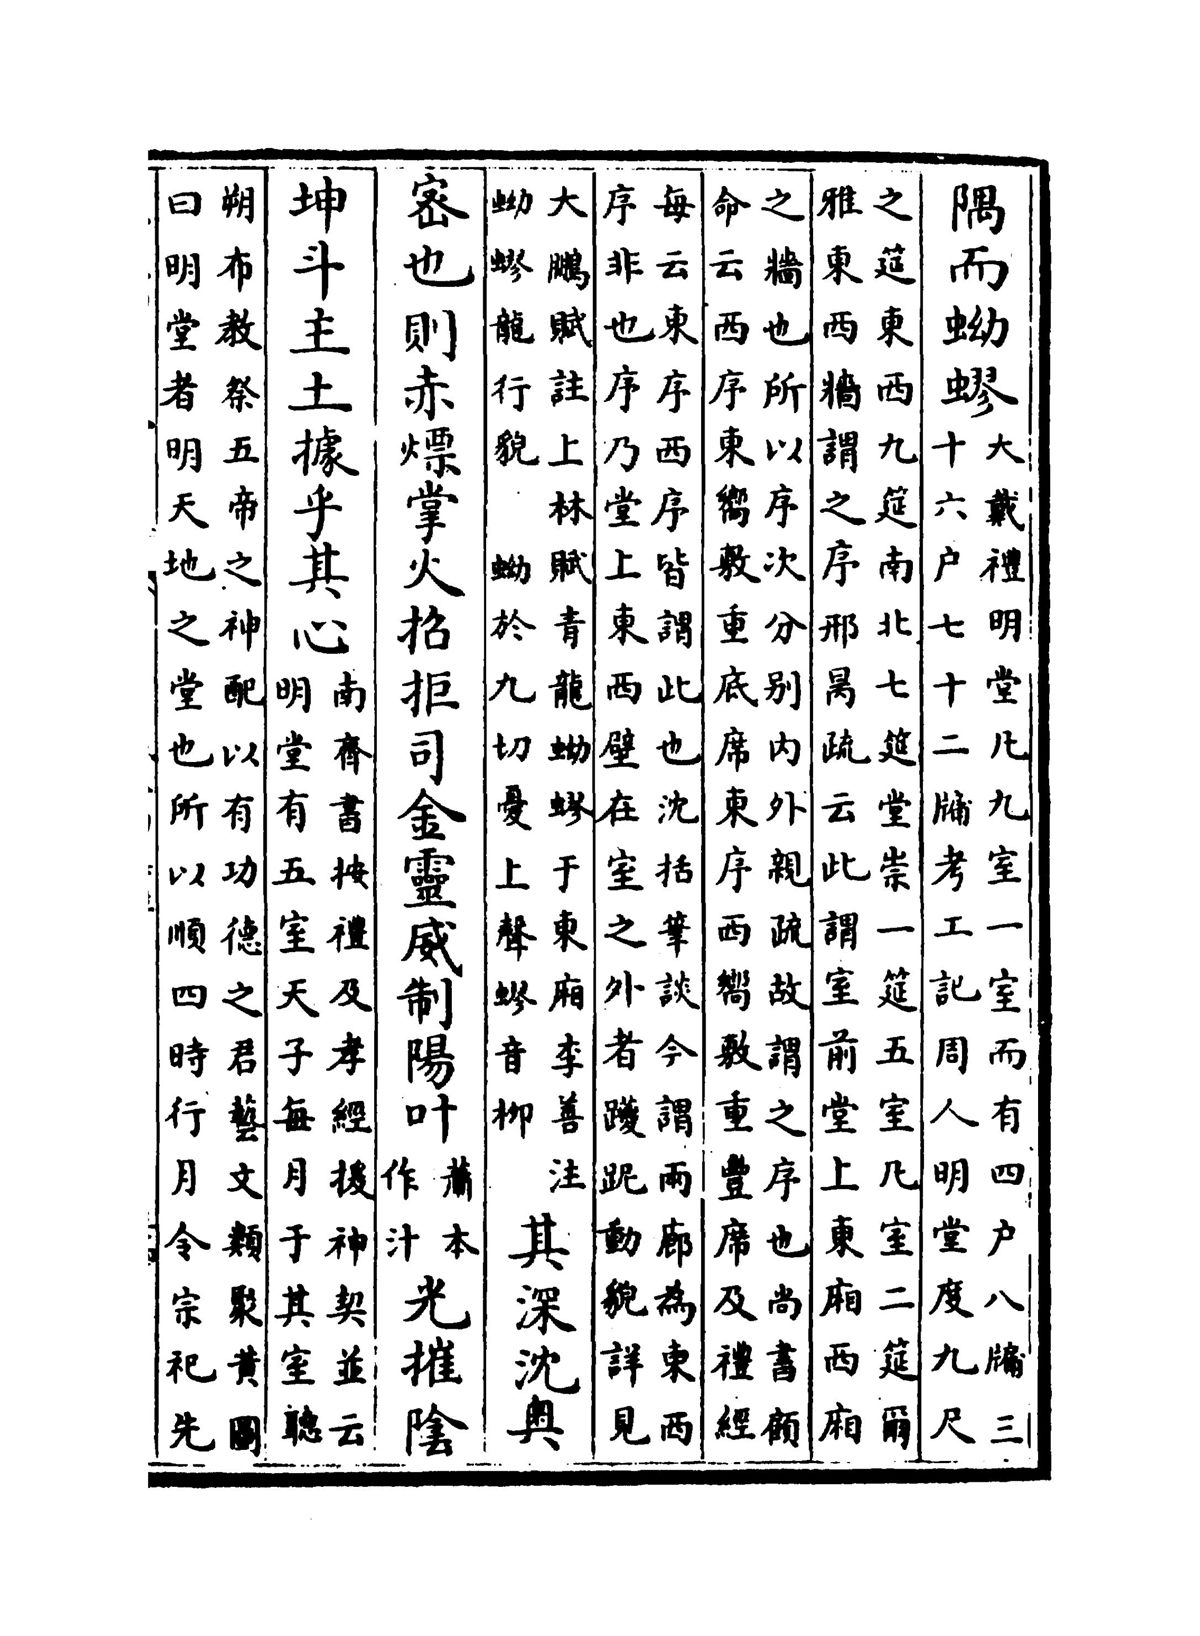 隅而蚴蟉大戴禮明堂凡九室一室而有四户八牖三
十六户七十二牖考工記周人明堂度九尺
之筵東西九筵南北七筵堂崇一筵五室凡室二筵爾
雅東西牆謂之序邢昺疏云此謂室前堂上東廂西廂
之牆也所以序次分别内外親疏故謂之序也尚書顧
命云西序東嚮敷重底席東序西嚮敷重豐席及禮經
每云東序西序皆謂此也沈括筆談今謂兩廊為東西
序非也序乃堂上東西壁在室之外者躨跜動貌詳見
大鵬賦註上林賦青龍蚴蟉于東廂李善注
蚴蟉龍行貌 蚴於九切憂上聲蟉音柳
其深沈奥
密也則赤熛掌火招拒司金靈威制陽叶
蕭本
作汁
光摧陰
坤斗主土據乎其心南齊書按禮及孝經援神契並云
明堂有五室天子每月于其室聽
朔布教祭五帝之神配以有功德之君藝文類聚黄圖
曰明堂者明天地之堂也所以順四時行月令宗祀先